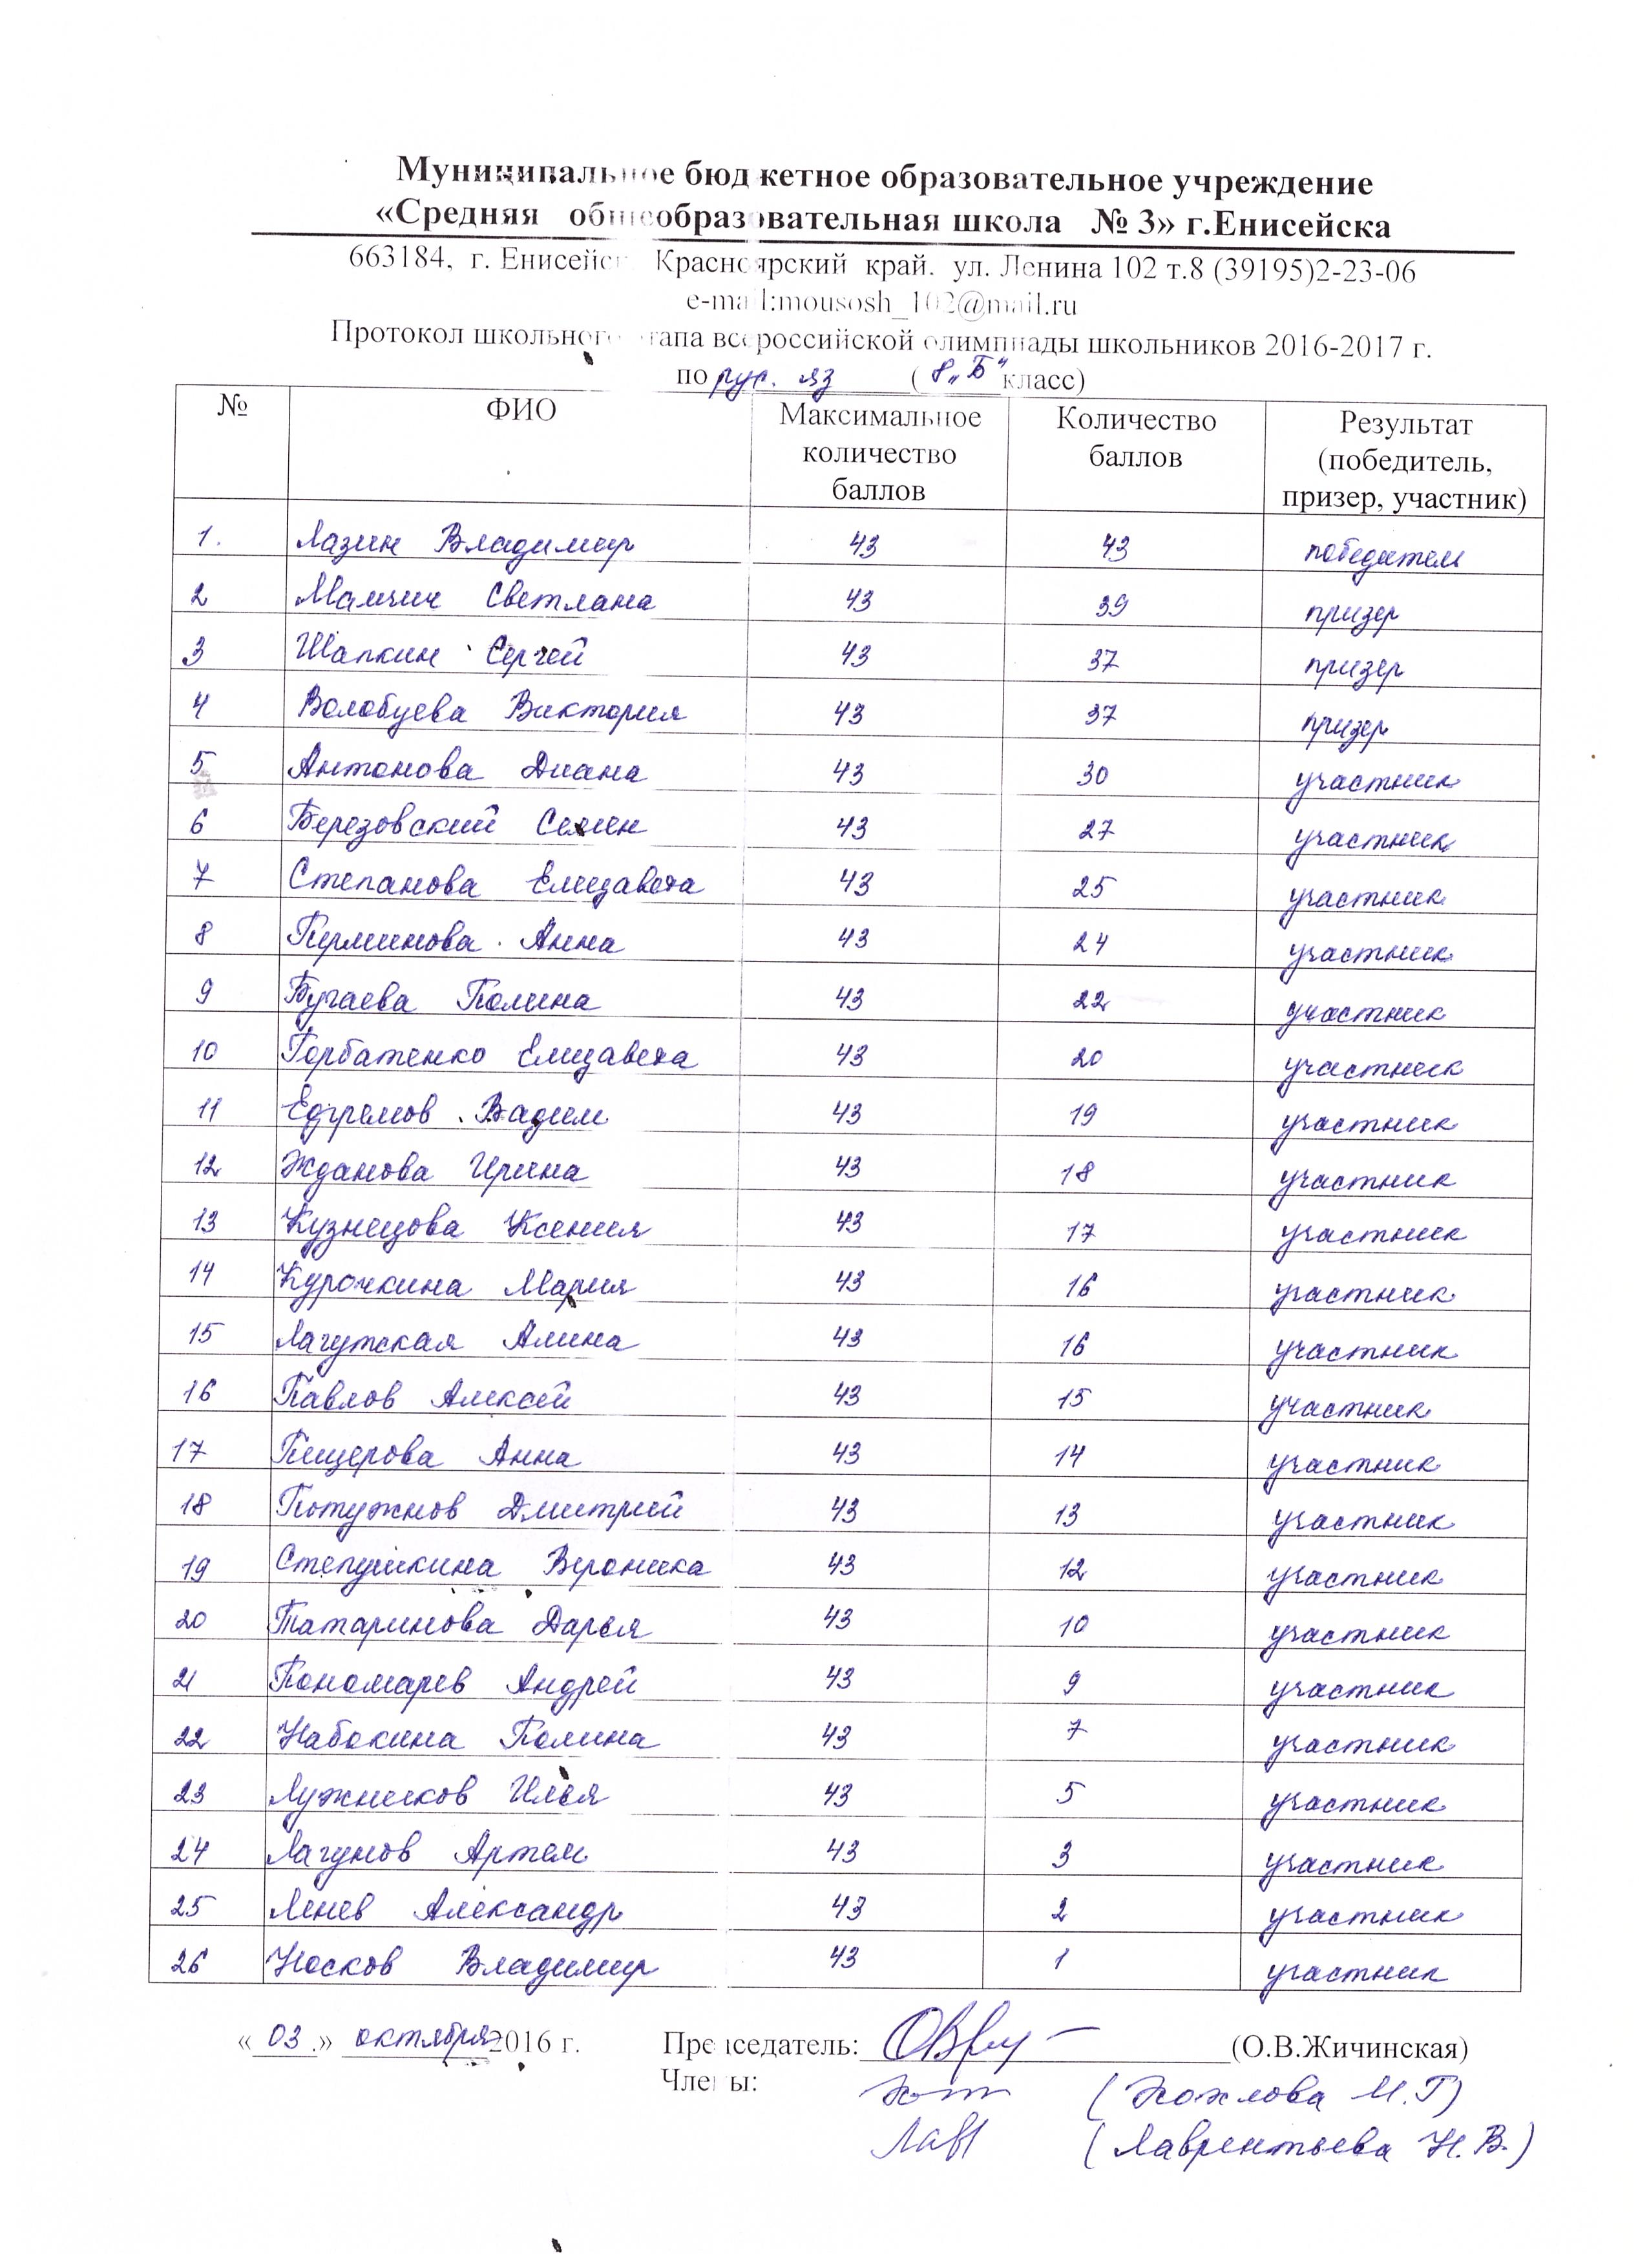 Муниципальное бюджетное образовательное учреждение
«Средняя общеобразовательная школа № 3» г.Енисейска
663184, г. Енисейск Красноярский край. ул. Ленина 102 т.8 (39195)2-23-06
e-mail:mousosh_102@mail.ru
Протокол школьного этапа всероссийской олимпиады школьников 2016-2017 г.
по рус. яз ( 8 „Б“ класс)
№ ФИО Максимальное количество баллов Количество баллов Результат (победитель, призер, участник)
1. Лазин Владимир 43 43 победитель
2 Мамчич Светлана 43 39 призер
3 Шапкин Сергей 43 37 призер
4 Волобуева Виктория 43 37 призер
5 Антонова Диана 43 30 участник
6 Березовский Семен 43 27 участник
7 Степанова Елизавета 43 25 участник
8 Перминова Анна 43 24 участник
9 Бугаева Полина 43 22 участник
10 Горбатенко Елизавета 43 20 участник
11 Ефремов Вадим 43 19 участник
12 Жданова Ирина 43 18 участник
13 Кузнецова Ксения 43 17 участник
14 Курочкина Мария 43 16 участник
15 Лагутская Алина 43 16 участник
16 Павлов Алексей 43 15 участник
17 Пещерова Анна 43 14 участник
18 Потужнов Дмитрий 43 13 участник
19 Степушкина Вероника 43 12 участник
20 Татаринова Дарья 43 10 участник
21 Пономарев Андрей 43 9 участник
22 Набокина Полина 43 7 участник
23 Лужников Илья 43 5 участник
24 Лагунов Артем 43 3 участник
25 Ленев Александр 43 2 участник
26 Носков Владимир 43 1 участник
« 03 .» октября 2016 г. Председатель: (О.В.Жичинская)
Члены: (Хохлова М.Г)
Лавр (Лаврентьева Н.В.)